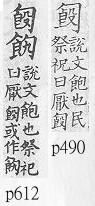 匓
說文飽也民
祭祝曰厭匓
p490
匓
說文飽也祭祀
曰厭匓或作
p612